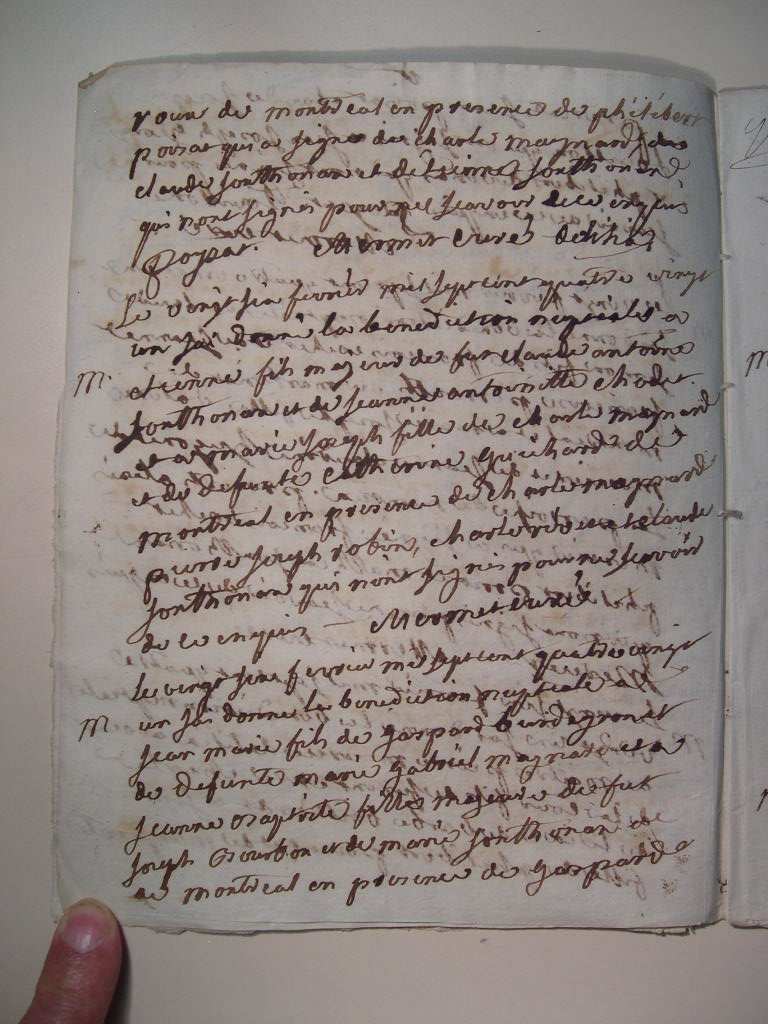 de montreal en presence de philibert
poisat qui a signé de charle maynard de
claude sonthonax et d'etienne sonthonax
qui n'ont signés pour ne scavoir de ce enquis
Poysat. Mermet curé
Le vingt six fevrier mil sept cent quatre vingt
un jai donné la benediction nuptiale a
M. etienne fils majeur de fut claude antoine
sonthonax et de jeanne antoinette chodet
et a marie joseph fille de charle maynard
et de defunte catherine guichard de
montreal en presence de charle maynard
pierre joseph robin, charle et claude
sonthonax qui n'ont signés pour ne scavoir
de ce enquis Mermet curé
Le vingt six fevrier mil sept cent quatre vingt
M un jai donné la benediction nuptiale a
jean marie fils de gaspard et
de defunte marie gabriel maynard et a
jeanne baptiste fille majeure de fut
joseph Bourbon et de marie sonthonax
de montreal en presence de gaspard